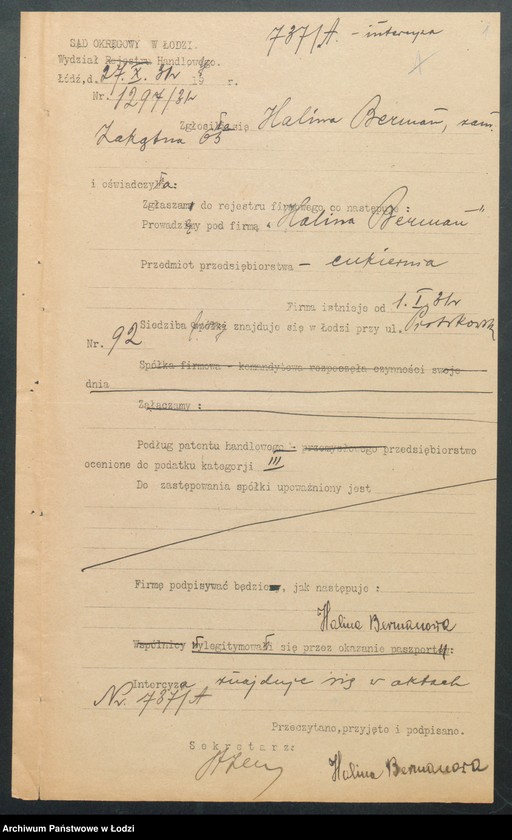 737/A. - intercyza
SĄD OKRĘGOWY W ŁODZI.
Wydział Rejestru Handlowego.
Łódź, d. 27. X. 31r 19 r.
Nr. 1297/31
Zgłosiła się Halina Berman, zam.
Zakątna 65
i oświadczyła:
Zgłaszam do rejestru firmowego co następuje:
Prowadzę pod firmą "Halina Berman"
Przedmiot przedsiębiorstwa - cukiernia
Firma istnieje od 1. I. 31r
Siedziba firmy znajduje się w Łodzi przy ul. Piotrkowsk
Nr. 92
Spółka firmowa - komandytowa rozpoczęła czynności swoje
dnia
Załączamy :
Podług patentu handlowego - przemysłowego przedsiębiorstwo
ocenione do podatku kategorji III
Do zastępowania spółki upoważniony jest
Firmę podpisywać będzie, jak następuje :
Halina Bermanowa
Wspólnicy wylegitymowali się przez okazanie paszportu:
Intercyza znajduje się w aktach
Nr. 737/A
Przeczytano, przyjęto i podpisano.
Sekretarz:
Halina Bermanowa
Archiwum Państwowe w Łodzi